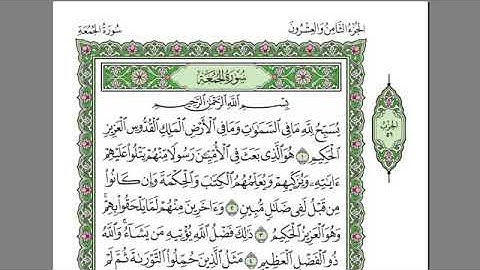 سُورَةُ الجُمُعَةِ
الجُزْءُ الثَّامِنُ وَالعِشْرُونَ
سُورَةُ الجُمُعَةِ
بِسْمِ اللَّهِ الرَّحْمَٰنِ الرَّحِيمِ
يُسَبِّحُ لِلَّهِ مَا فِي السَّمَٰوَٰتِ وَمَا فِي الْأَرْضِ الْمَلِكِ الْقُدُّوسِ الْعَزِيزِ
الْحَكِيمِ ١ هُوَ الَّذِي بَعَثَ فِي الْأُمِّيِّـۧنَ رَسُولًا مِّنْهُمْ يَتْلُوا۟ عَلَيْهِمْ
ءَايَٰتِهِۦ وَيُزَكِّيهِمْ وَيُعَلِّمُهُمُ الْكِتَٰبَ وَالْحِكْمَةَ وَإِن كَانُوا۟
مِن قَبْلُ لَفِي ضَلَٰلٍ مُّبِينٍ ٢ وَءَاخَرِينَ مِنْهُمْ لَمَّا يَلْحَقُوا۟ بِهِمْ ۚ
وَهُوَ الْعَزِيزُ الْحَكِيمُ ٣ ذَٰلِكَ فَضْلُ اللَّهِ يُؤْتِيهِ مَن يَشَآءُ ۚ وَاللَّهُ
ذُو الْفَضْلِ الْعَظِيمِ ٤ مَثَلُ الَّذِينَ حُمِّلُوا۟ التَّوْرَىٰةَ ثُمَّ لَمْ
الحِزْبُ
٥٦